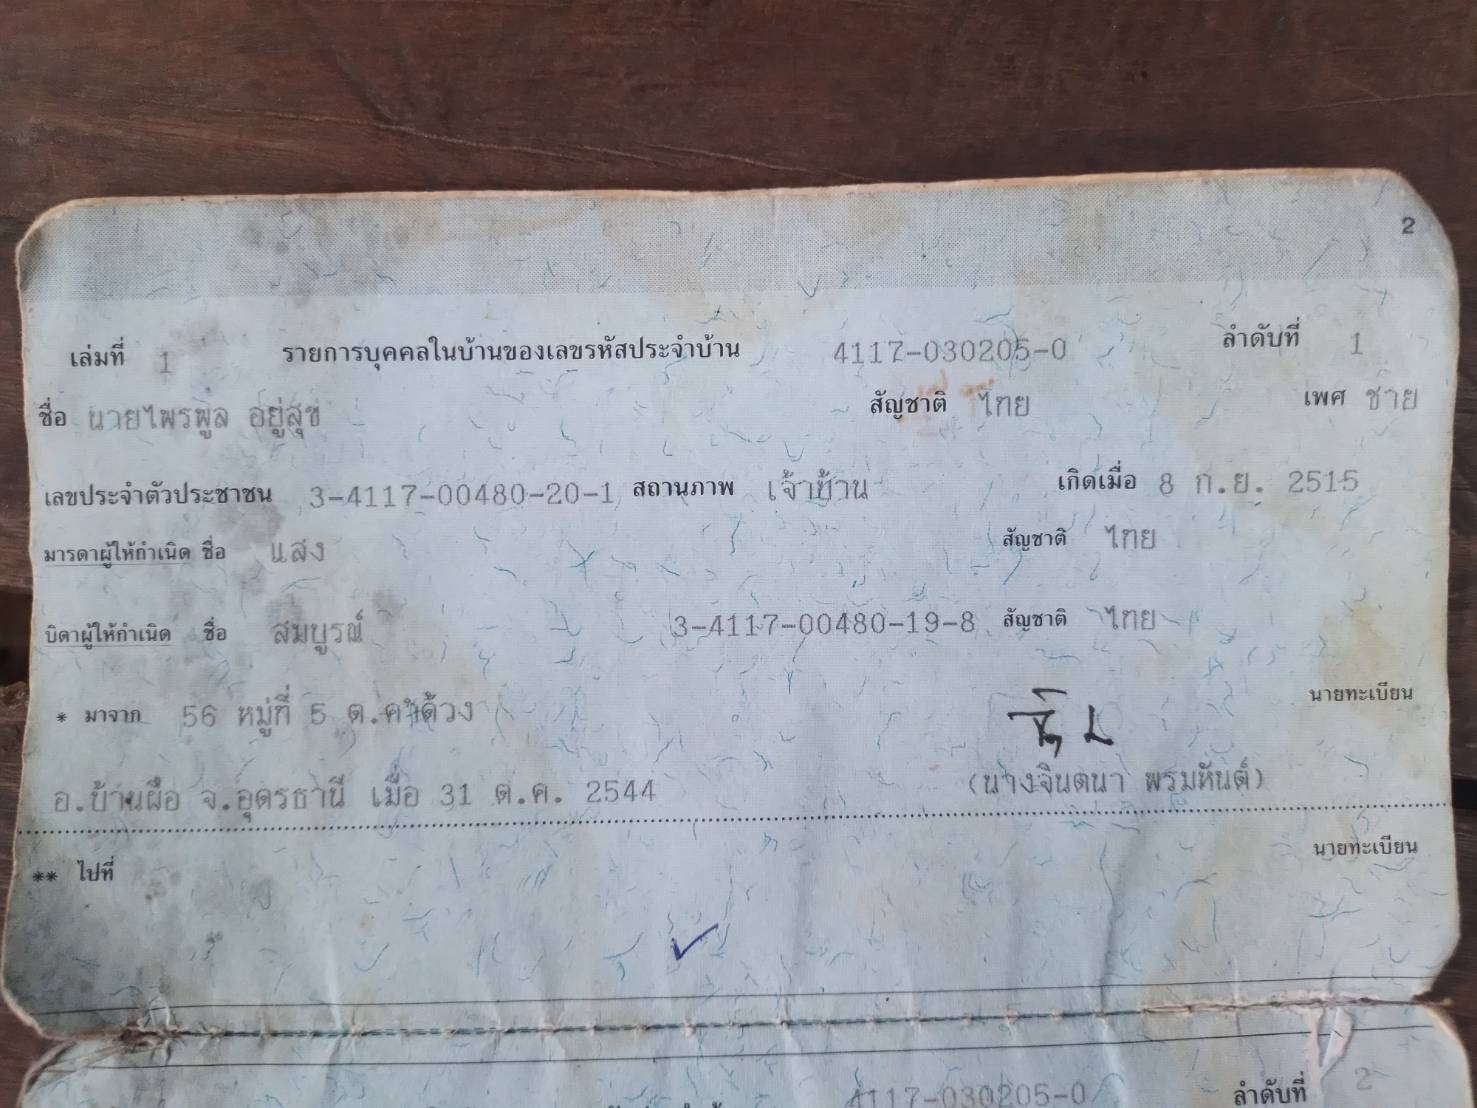 2
เล่มที่ 1 รายการบุคคลในบ้านของเลขรหัสประจำบ้าน 4117-030205-0 ลำดับที่ 1
ชื่อ นายไพรพูล อยู่สุข สัญชาติ ไทย เพศ ชาย
เลขประจำตัวประชาชน 3-4117-00480-20-1 สถานภาพ เจ้าบ้าน เกิดเมื่อ 8 ก.ย. 2515
มารดาผู้ให้กำเนิด ชื่อ แสง สัญชาติ ไทย
บิดาผู้ให้กำเนิด ชื่อ สมบูรณ์ 3-4117-00480-19-8 สัญชาติ ไทย
* มาจาก 56 หมู่ที่ 5 ต.คำด้วง นายทะเบียน
อ.บ้านผือ จ.อุดรธานี เมื่อ 31 ต.ค. 2544 (นางจินตนา พรมหันต์)
** ไปที่ นายทะเบียน
4117-030205-0 ลำดับที่ 2